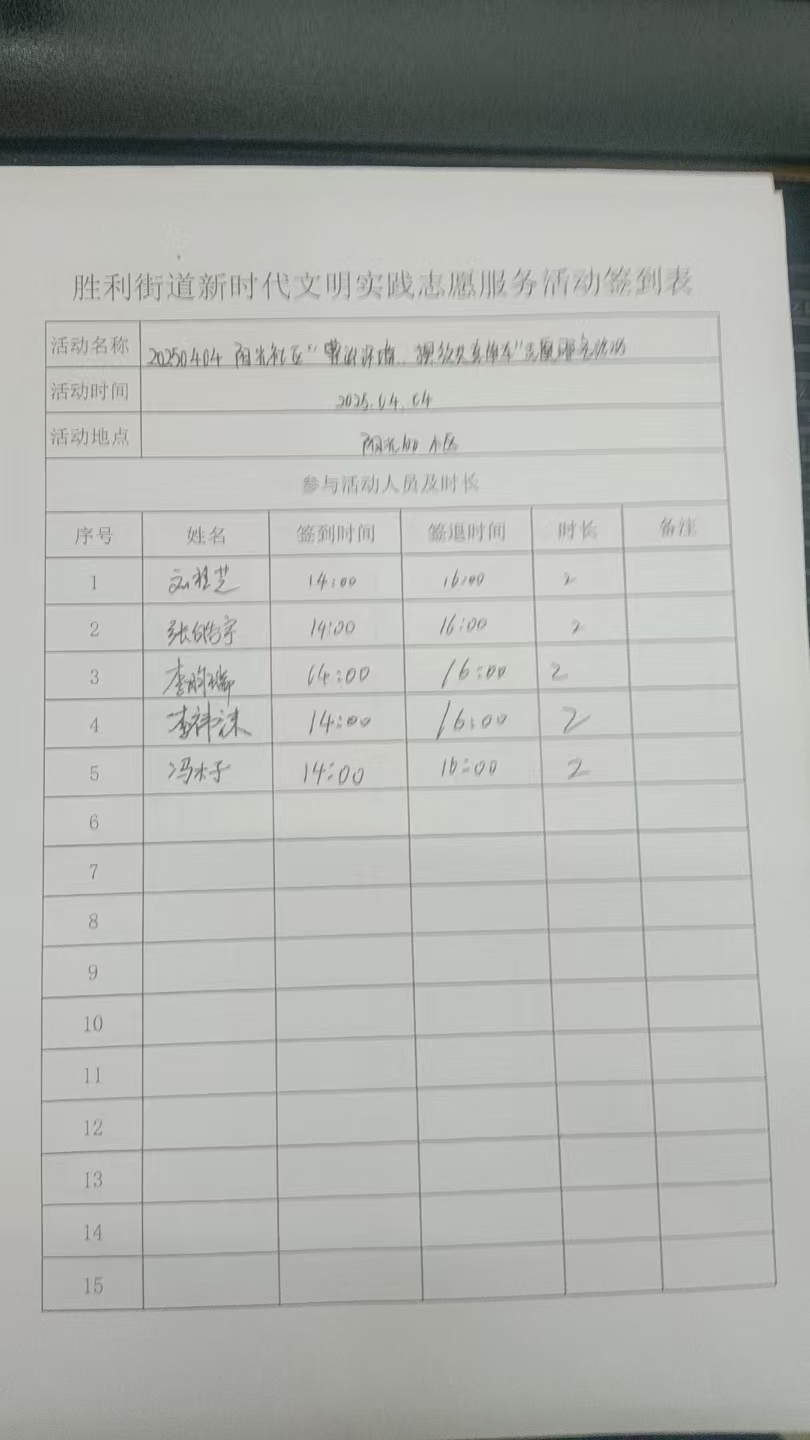 胜利街道新时代文明实践志愿服务活动签到表
活动名称 20250404 阳光社区“ 规范共享停车”志愿服务活动
活动时间 2025.04.04
活动地点 阳光100小区
参与活动人员及时长
序号 姓名 签到时间 签退时间 时长 备注
1 刘桂芝 14:00 16:00 2
2 张皓宇 14:00 16:00 2
3 李 14:00 16:00 2
4 李 14:00 16:00 2
5 冯木子 14:00 16:00 2
6
7
8
9
10
11
12
13
14
15